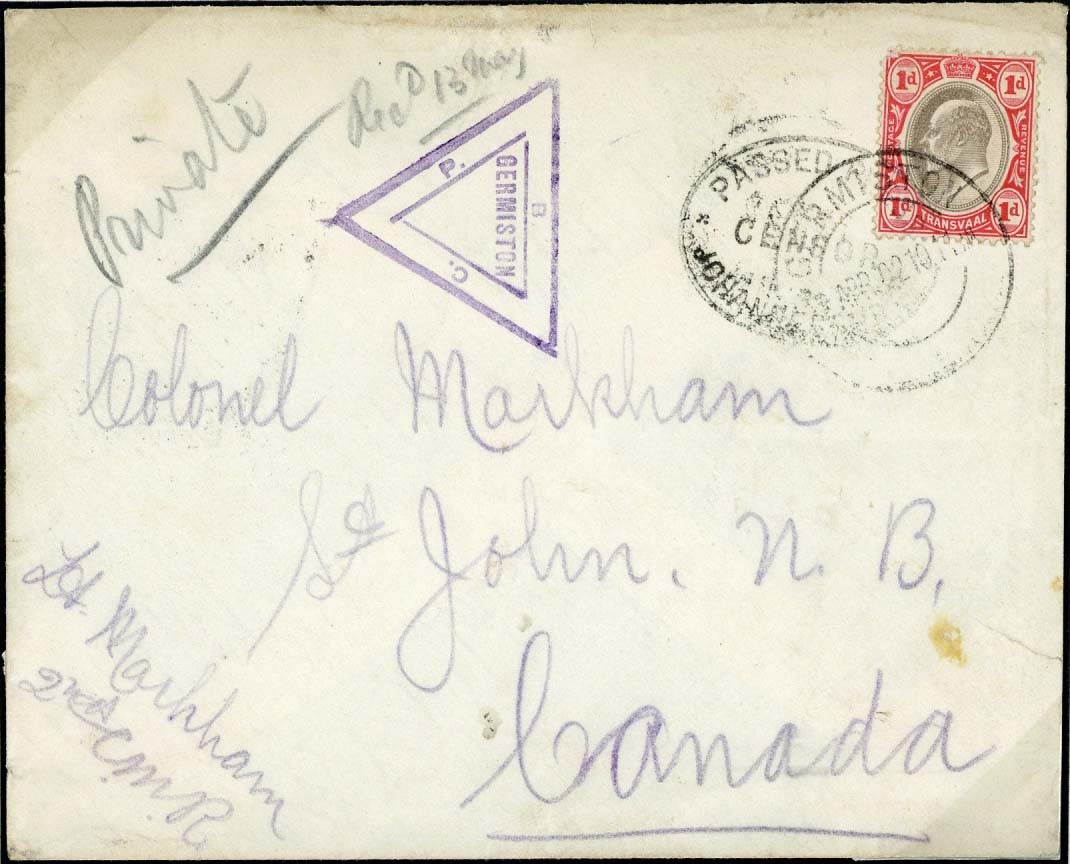 Private
Rec'd 13 May
P. B. C.
GERMISTON
1d 1d
POSTAGE REVENUE
1d TRANSVAAL 1d
PASSED
CENSOR
GERMISTON
APR 02 10
Colonel Markham
St John. N. B.
Canada
Lt. Markham
2nd C.M.R.